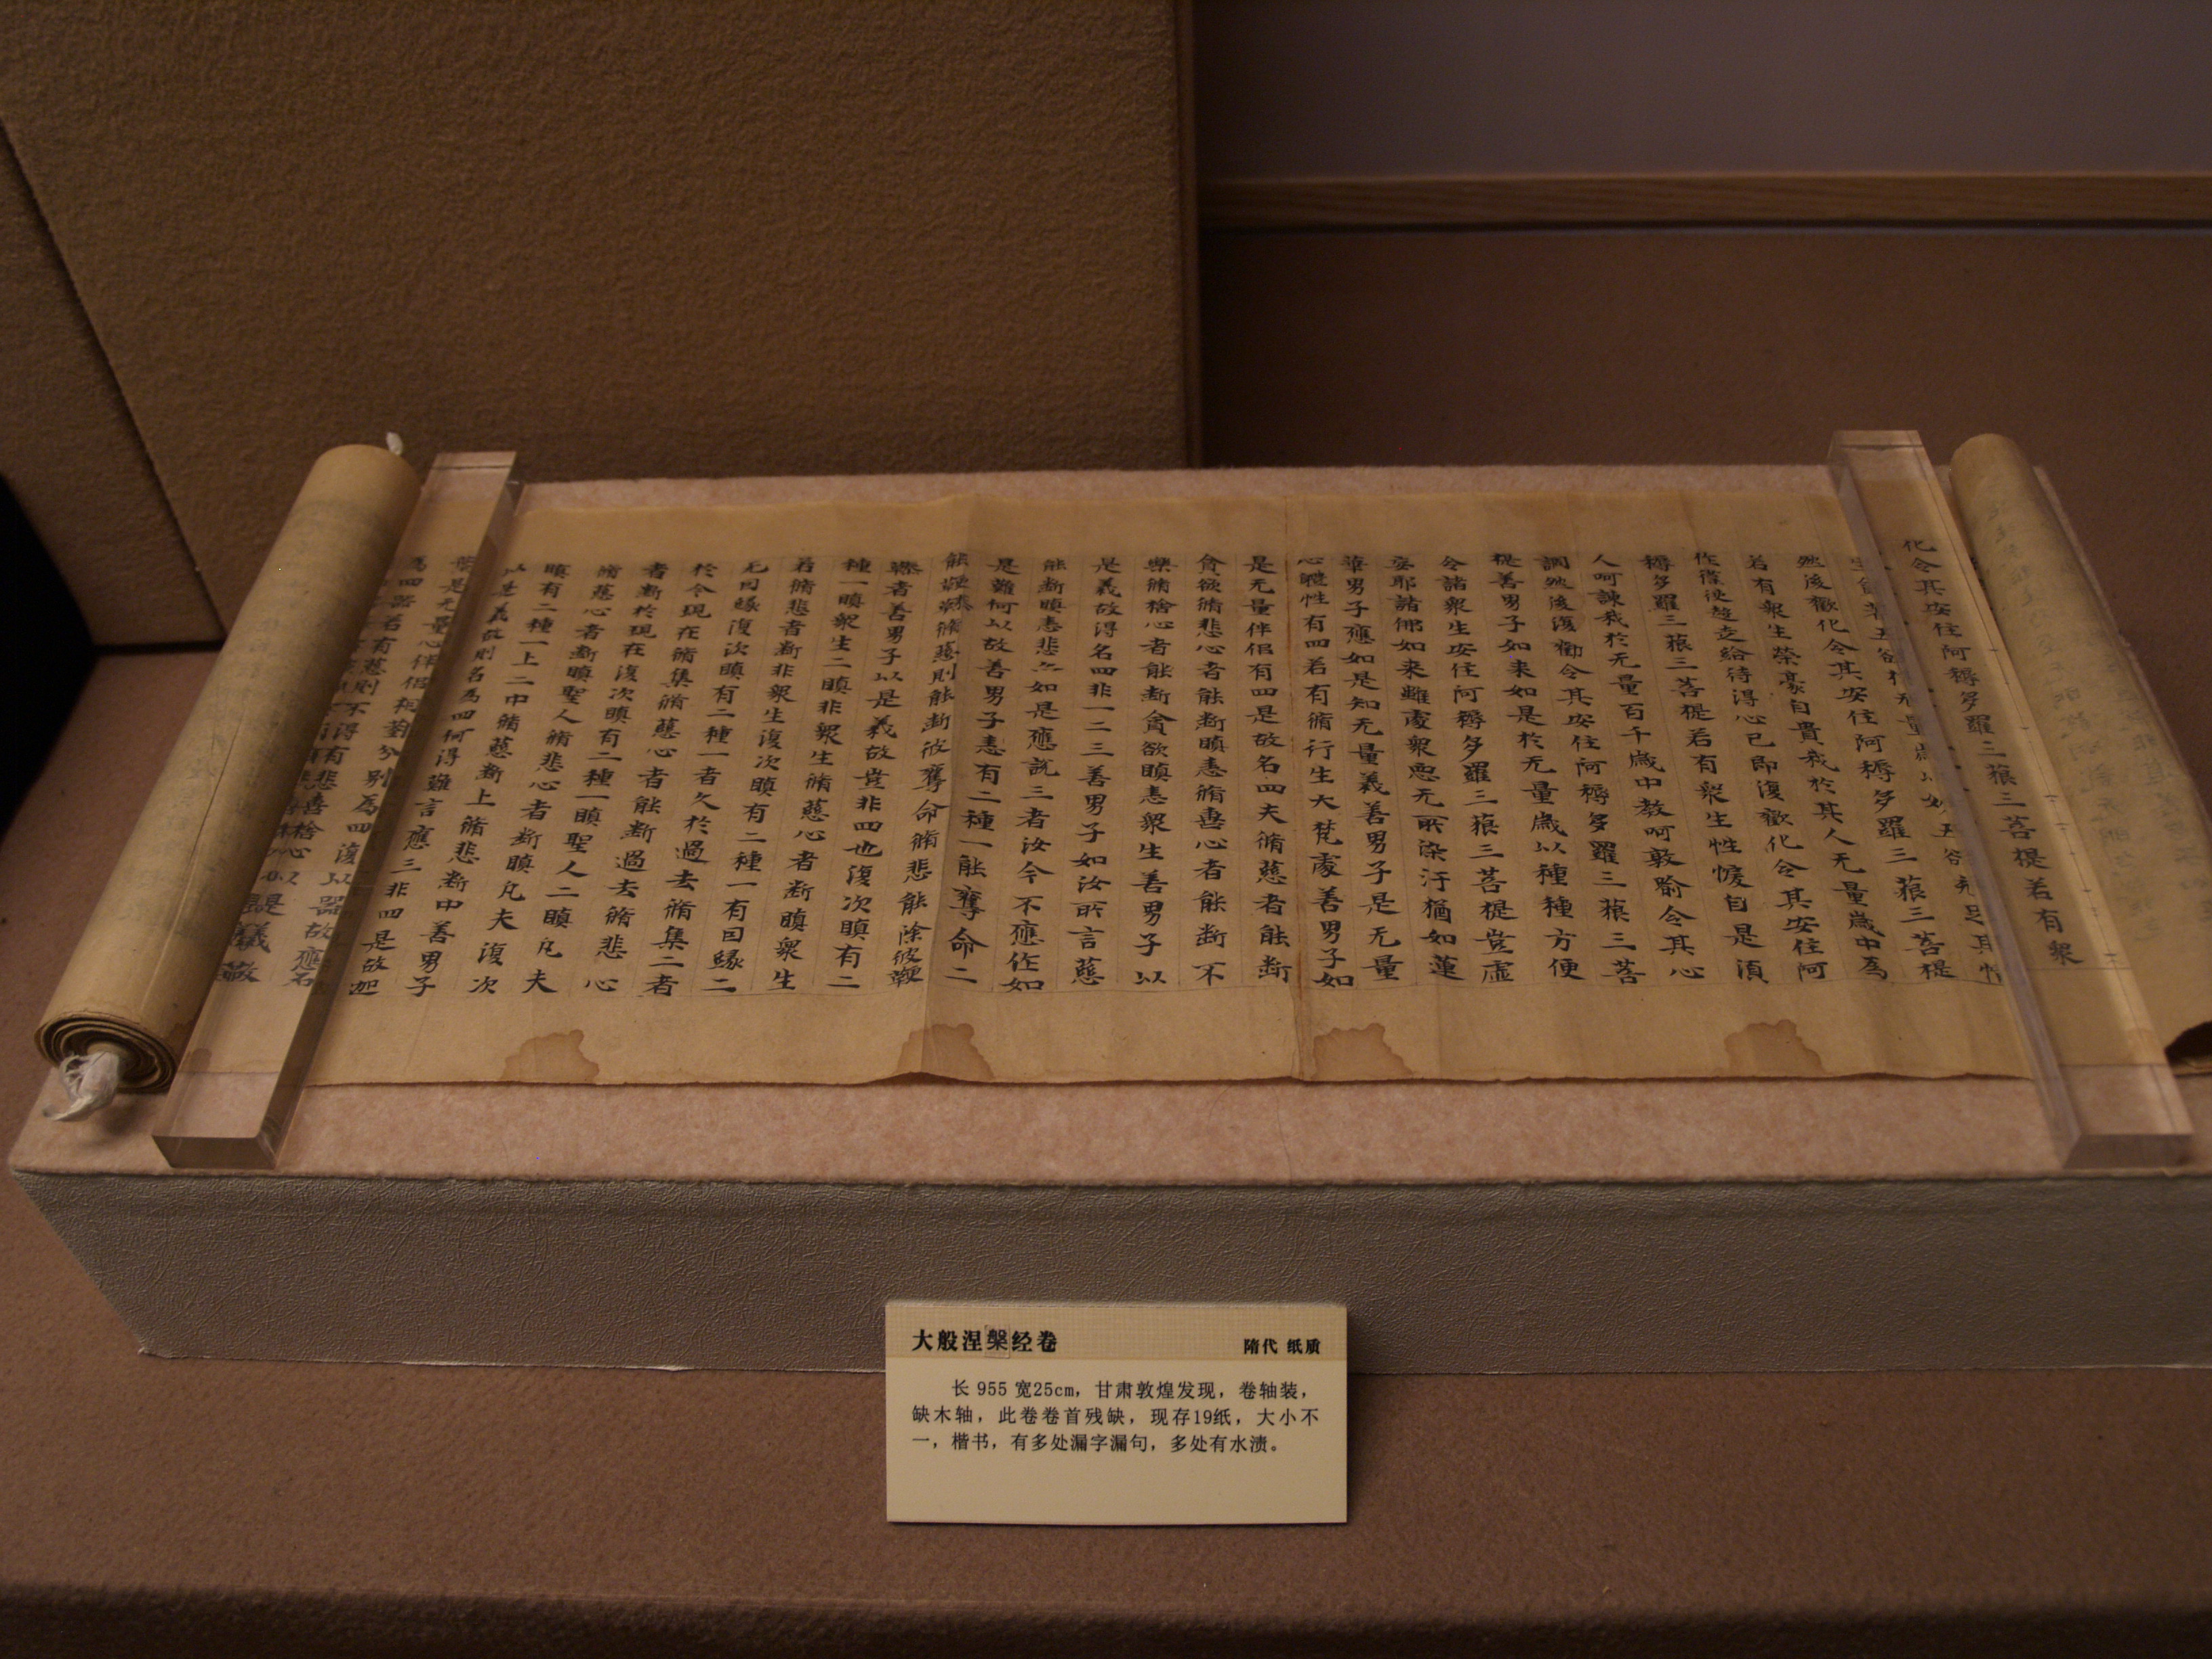 化令其安住阿耨多羅三藐三菩提若有衆
然後勸化令其安住阿耨多羅三藐三菩提
若有衆生榮豪自貴我於其人无量歲中為
作僕使趍走給侍得心已即復勸化令其安住阿
耨多羅三藐三菩提若有衆生性悷自是湏
人呵諫我於无量百千歲中教呵敦喻令其心
調然後復勸令其安住阿耨多羅三藐三菩
提善男子如来如是於无量歲以種種方便
令諸衆生安住阿耨多羅三藐三菩提豈虛
妄耶諸佛如来雖處衆惡无所染汙猶如蓮
華男子應如是知无量義善男子是无量
心體性有四若有脩行生大梵處善男子如
是无量伴侣有四是故名四夫脩慈者能断
貪欲脩悲心者能断瞋恚脩喜心者能断不
樂脩捨心者能断貪欲瞋恚衆生善男子以
是義故得名四非一二三善男子如汝所言慈
能断瞋恚悲亦如是應說三者汝今不應作如
是難何以故善男子恚有二種一能奪命二
能鞭撻脩慈則能断彼奪命脩悲能除彼鞭
撻者善男子以是義故豈非四也復次瞋有二
種一瞋衆生二瞋非衆生脩慈心者断瞋衆生
若脩悲者断非衆生復次瞋有二種一有因縁二
无因縁復次瞋有二種一者久於過去脩集二者
於今現在脩集脩慈心者能断過去脩悲心
者断於現在復次瞋有二種一瞋聖人二瞋凡夫
脩慈心者断瞋聖人脩悲心者断瞋凡夫復次
瞋有二種一上二中脩慈断上脩悲断中善男子
以是義故則名為四何得難言應三非四是故迦
葉是无量心伴侣相對分別為四復以器故應名
為四器若有慈則不得有悲喜捨心以是義故
大般涅槃经卷 隋代 纸质
长 955 宽25cm，甘肃敦煌发现，卷轴装，
缺木轴，此卷卷首残缺，现存19纸，大小不
一，楷书，有多处漏字漏句，多处有水渍。